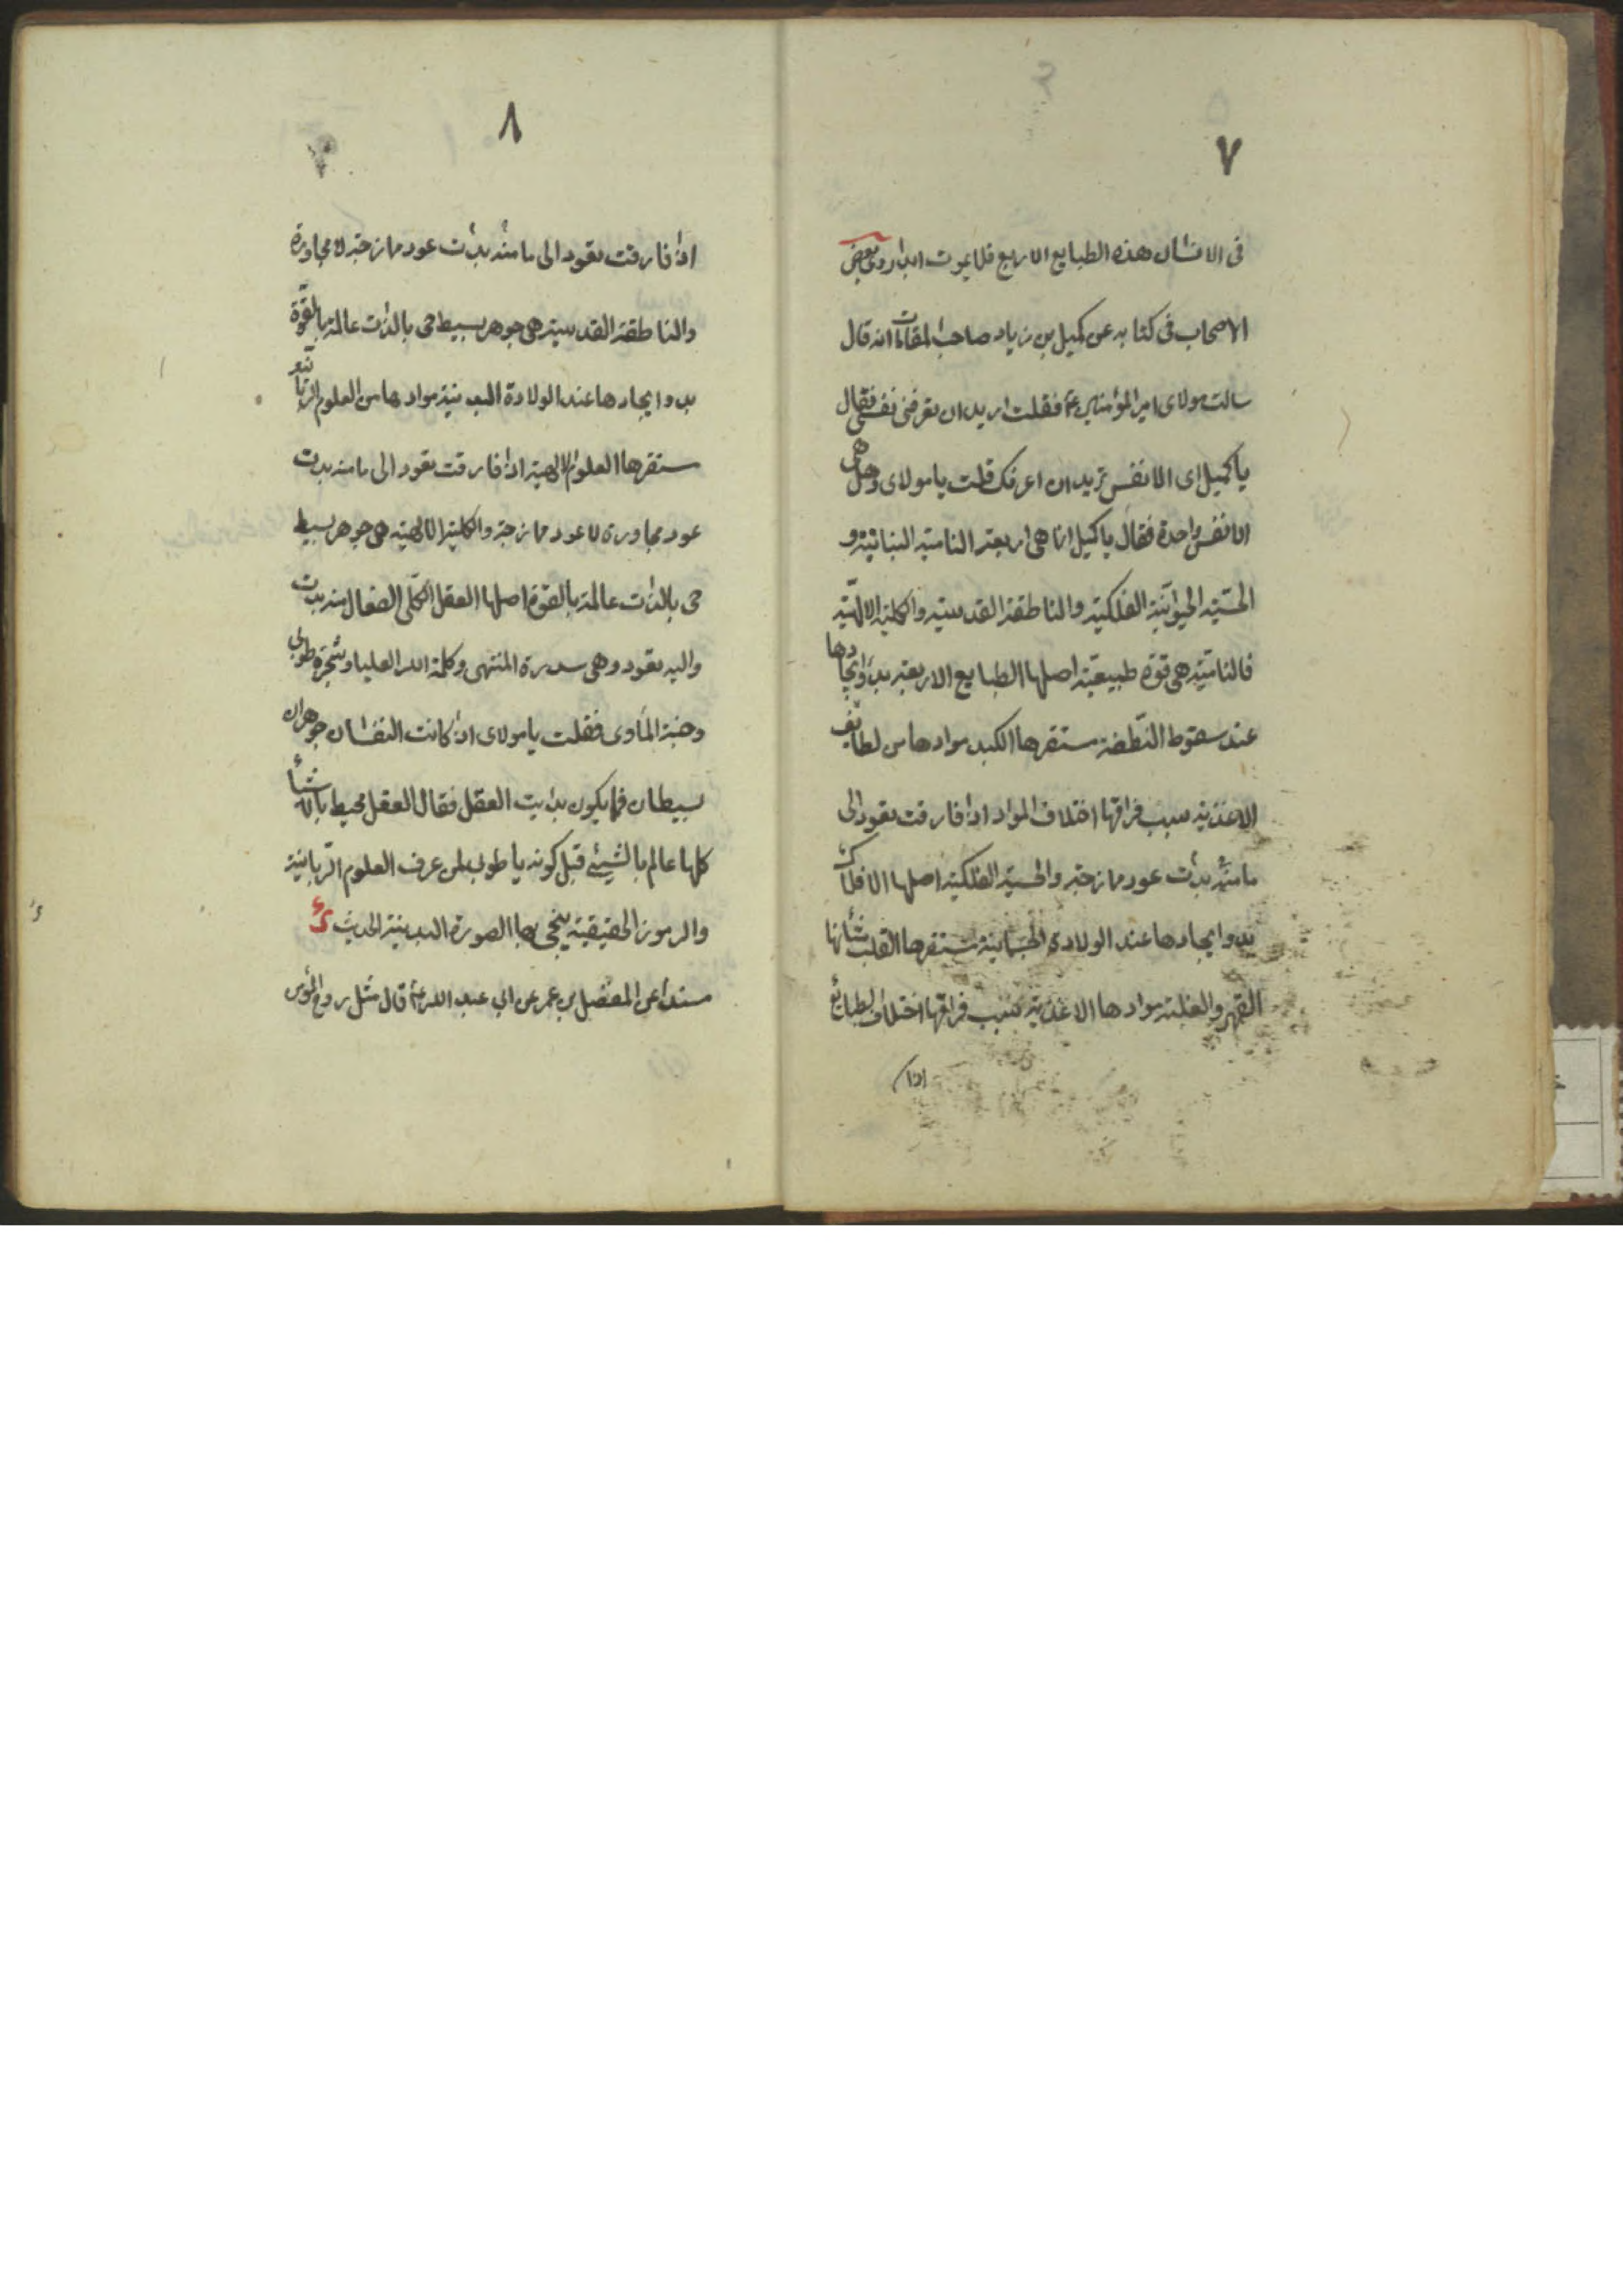 ٧
فی الانسان هذه الطبایع الاربع فلا یموت ابدا روی بعض
الاصحاب فی کتابه عن کمیل بن زیاد صاحب المقامات انه قال
سالت مولای امیر المؤمنین ع فقلت ارید ان تعرفنی نفسی فقال
یا کمیل ای الانفس ترید ان اعرفک قلت یا مولای وهل هی
الا نفس واحدة فقال یا کمیل انما هی اربعة النامیة النباتیة و
الحسّیّة الحیوانیّة الفلکیّة والناطقة القدسیّة والکلیّة الالهیّة
فالنامیّة هی قوّة طبیعیّة اصلها الطبایع الاربعة بدو ایجادها
عند سقوط النّطفة مستقرها الکبد موادها من لطایف
الاغذیة سبب فراقها اختلاف المواد اذا فارقت تعود الی
ما منه بدئت عود ممازجة والحسیّة الفلکیة اصلها الافلاک
بدو ایجادها عند الولادة الجسمانیّة مستقرها القلب شأنها
القهر والغلبة موادها الاغذیة سبب فراقها اختلاف الطبائع
اذا
٨
اذا فارقت تعود الی ما منه بدئت عود ممازجة لا مجاورة
والناطقة القدسیّة هی جوهر بسیط حی بالذات عالمة بالقوّة
بدو ایجادها عند الولادة البدنیّة موادها من العلوم الربّانیّة
مستقرها العلوم الالهیة اذا فارقت تعود الی ما منه بدت
عود مجاورة لا عود ممازجة والکلیّة الالهیّة هی جوهر بسیط
حی بالذات عالمة بالقوة اصلها العقل الکلّی الفعال منه بدت
والیه تعود وهی سدرة المنتهی وکلمة الله العلیا وشجرة طوبی
وجنة المأوی فقلت یا مولای اذا کانت النفسان جوهران
بسیطان فما یکون بدایت العقل فقال العقل محیط بالاشیأ
کلها عالم بالشیئ قبل کونه یا طوبی لمن عرف العلوم الرّبانیّة
والرموز الحقیقیّة ینجی بها الصورة البدنیّة الحدیث
مسندا عن المفضل بن عمر عن ابی عبد الله ع قال مثل روح المؤمن